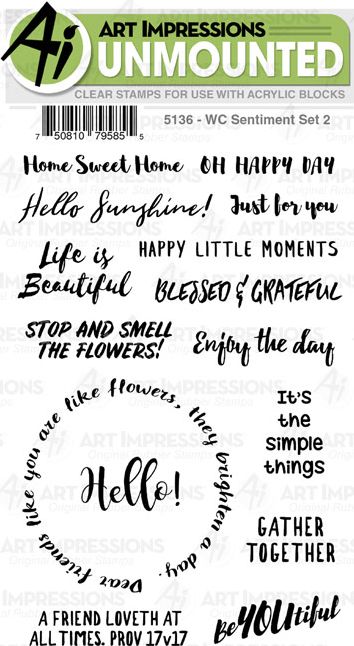 Ai ART IMPRESSIONS
UNMOUNTED
CLEAR STAMPS FOR USE WITH ACRYLIC BLOCKS
5136 - WC Sentiment Set 2
7 50810 79585 5
Home Sweet Home
OH HAPPY DAY
Hello Sunshine!
Just for you
Life is
Beautiful
HAPPY LITTLE MOMENTS
BLESSED & GRATEFUL
STOP AND SMELL
THE FLOWERS!
Enjoy the day
Dear friends like you are like flowers, they brighten a day.
Hello!
It's
the
simple
things
GATHER
TOGETHER
A FRIEND LOVETH AT
ALL TIMES. PROV 17v17
BeYOUtiful
Ai ART IMPRESSIONS
Original Rubber Stamps